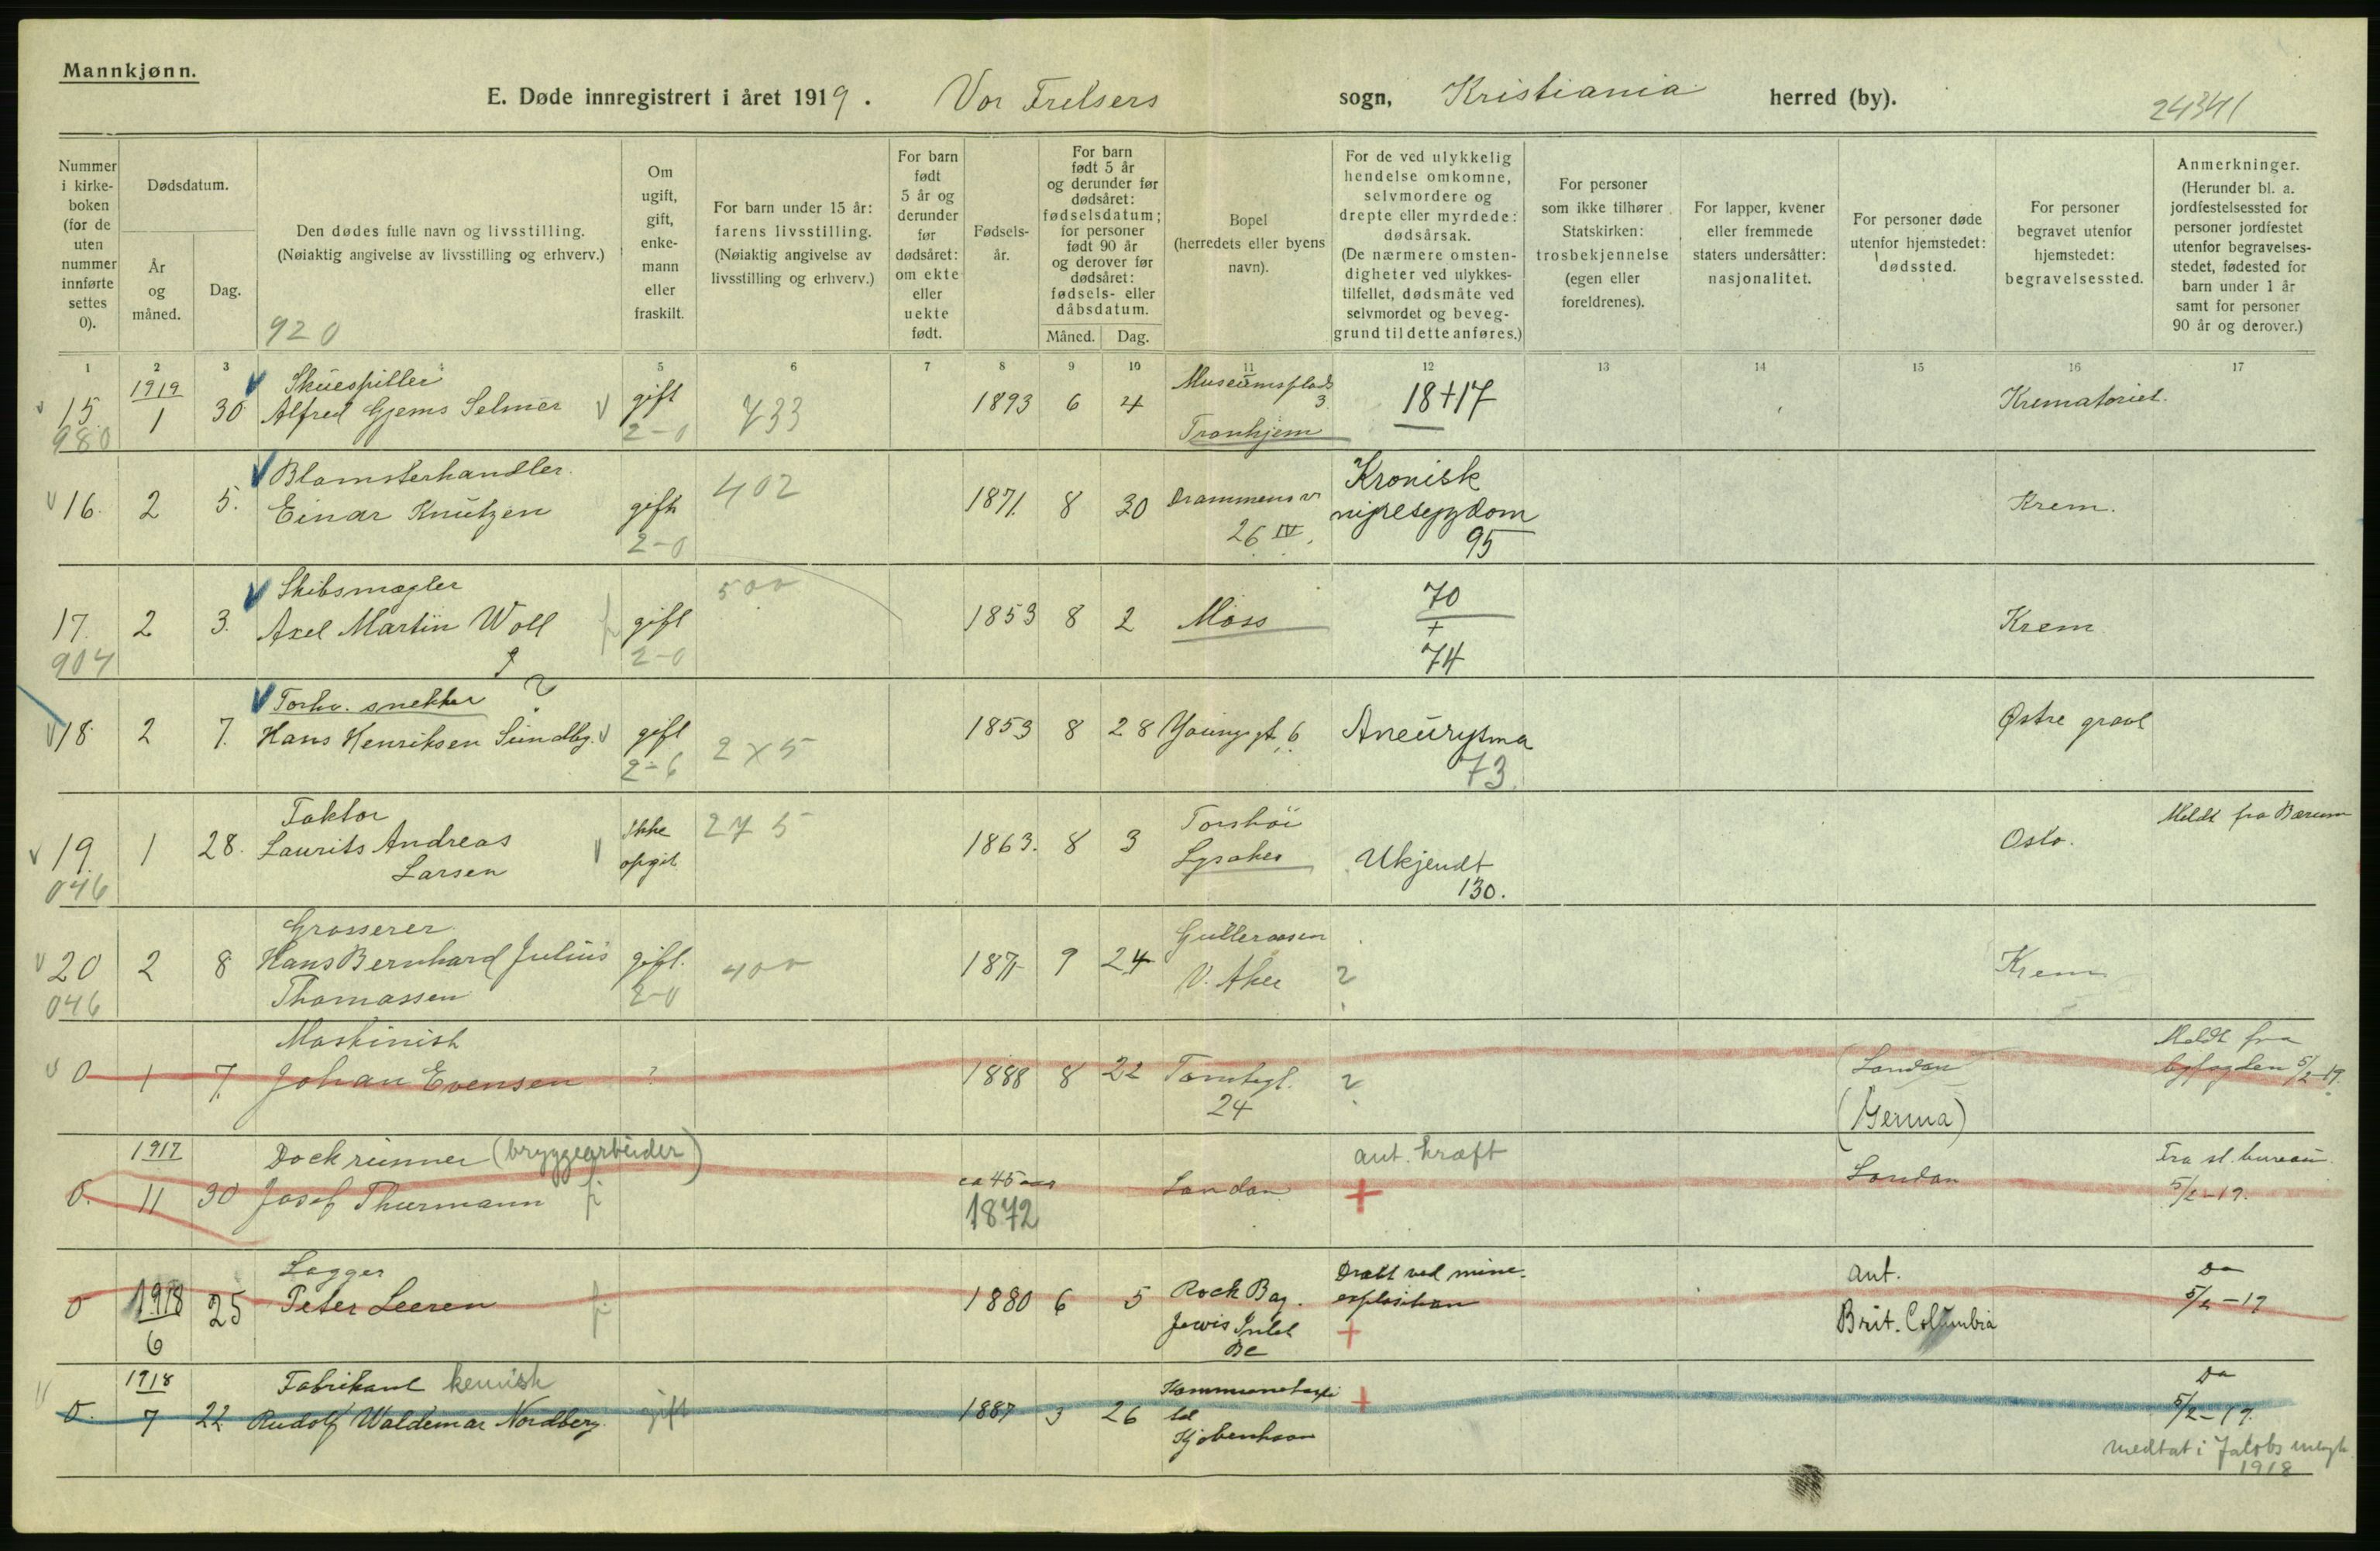 Mannkjønn.
E. Døde innregistrert i året 1919. Vor Frelsers sogn, Kristiania herred (by). 24341
Nummer i kirke-boken (for de uten nummer innførte settes 0).
Dødsdatum.
År og måned.
Dag.
Den dødes fulle navn og livsstilling.
(Nøiaktig angivelse av livsstilling og erhverv.)
920
Om ugift, gift, enke-mann eller fraskilt.
For barn under 15 år: farens livsstilling.
(Nøiaktig angivelse av livsstilling og erhverv.)
For barn født 5 år og derunder før dødsåret: om ekte eller uekte født.
Fødsels-år.
For barn født 5 år og derunder før dødsåret: fødselsdatum; for personer født 90 år og derover før dødsåret: fødsels- eller dåbsdatum.
Måned. Dag.
Bopel
(herredets eller byens navn).
For de ved ulykkelig hendelse omkomne, selvmordere og drepte eller myrdede: dødsårsak.
(De nærmere omsten-digheter ved ulykkes-tilfellet, dødsmåte ved selvmordet og beveg-grund til dette anføres.)
For personer som ikke tilhører Statskirken: trosbekjennelse (egen eller foreldrenes).
For lapper, kvener eller fremmede staters undersåtter: nasjonalitet.
For personer døde utenfor hjemstedet: dødssted.
For personer begravet utenfor hjemstedet: begravelsessted.
Anmerkninger.
(Herunder bl. a. jordfestelsessted for personer jordfestet utenfor begravelses-stedet, fødested for barn under 1 år samt for personer 90 år og derover.)
1 2 3 4 5 6 7 8 9 10 11 12 13 14 15 16 17
1919 Skuespiller Museumsplads
15. 1 30 Alfred Gjems Selmer gift 733 1893 6 4 3 18+17 Krematoriet.
980 2-0 Tronhjem
Blomsterhandler 402 Kronisk
16. 2 5. Einar Knutzen gift 1871 8 30 Drammensv nyresygdom Krem.
2-0 26 IV. 95
Skibsmægler 500 70
17. 2 3. Axel Martin Woll gift 1853 8 2 Moss + Krem
904 2-0 74
Forhv. snekker ?
18 2 7. Hans Henriksen Sundbg. gift 2x5 1853 8 28 Youngsgt 6 Aneurysma Østre gravl
2-6 73
Faktor Ikke 275 Torshöi Meldt fra Bærum
19. 1 28. Laurits Andreas opgit 1863. 8 3 Lysaker Ukjendt Oslo.
046 Larsen 130.
Grosserer Gulleraasen
20 2 8 Hans Bernhard Julius gift. 400 1871 9 24 V. Aker ? Krem
046 Thomassen 2-0
Maskinist Meldt fra
0 1 7. Johan Evensen ? 1888 8 22 Tomtegt. ? London byfogden 5/2-19.
24 (Germa)
1917 Dockrunner (bryggearbeider) ant. kræft Fra st. bureau
0. 11 30 Josef Thurmann ca 45 aar London + London 5/2-19.
1872
Logger Dræbt ved mine- ant. Do
0 1918 25 Peter Leeren 1880 6 5 Rock Bay. explosition Brit. Columbia 5/2-19
6 Jervis Inlet +
BC
1918 Fabrikant kemisk Kommunehospi + Do
0. 7 22 Rudolf Waldemar Nordberg. gift 1887 3 26 tal 5/2-19.
Kjøbenhavn
medtat i Jakobs menigh
1918